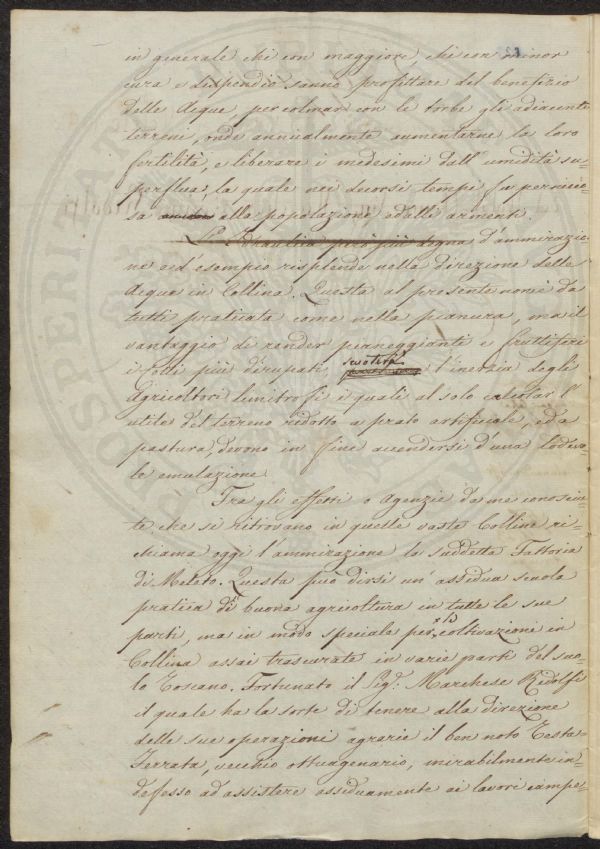 in generale chi con maggiore, chi con minor
cura e dispendio sanno profittare del benefizio
delle Acque, per colmar con le torbe gli adiacenti
terreni, onde annualmente aumentarne la loro
fertilità, e liberare i medesimi dall' umidità su-
perflua, la quale nei decorsi tempi fu pernicio-
sa alla popolazione ed alli armenti.
L'Idraulica però più degna d'ammirazio-
ne ed esempio risplende nella direzione delle
Acque in Collina. Questa al presente non è da
tutti praticata come nella pianura, ma il
vantaggio di render pianeggianti e fruttiferi
i Colli più dirupati, scuoterà l'inerzia degli
Agricoltori limitrofi i quali al solo calcolar l'
utile del terreno ridotto a prato artificiale, e da
pastura, devono in fine accendersi d'una lodevo-
le emulazione.
Tra gli effetti o Agenzie da me conosciu-
te che si ritrovano in queste vaste Colline ri-
chiama oggi l'ammirazione la suddetta Fattoria
di Meleto. Questa può dirsi un' assidua scuola
pratica di buona agricoltura in tutte le sue
parti, ma in modo speciale per la coltivazioni in
Collina assai trascurate in varie parti del suo-
lo Toscano. Fortunato il Sig.r Marchese Ridolfi
il quale ha la sorte di tenere alla direzione
delle sue operazioni agrarie il ben noto Testa-
Ferrata, vecchio ottuagenario, mirabilmente in-
defesso ad assistere assiduamente ai lavori campe-